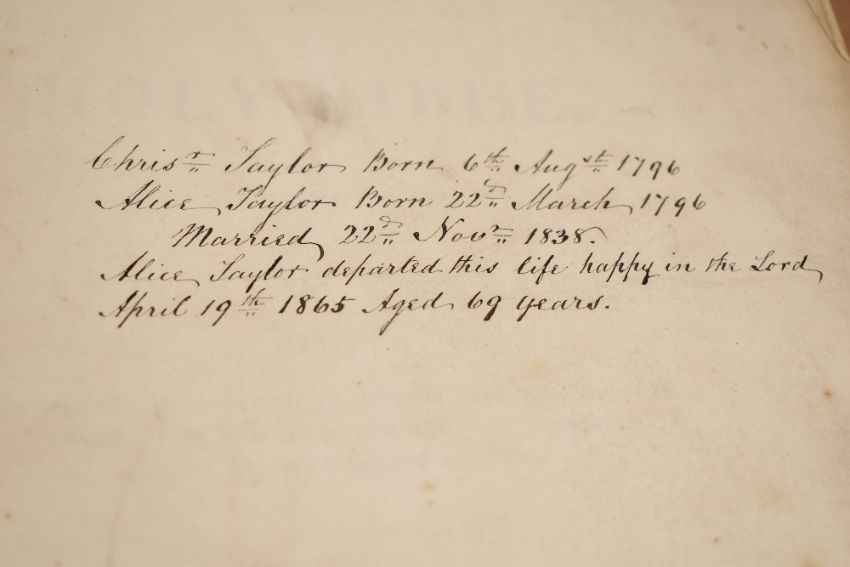 Chrisr Taylor Born 6th Augst 1796
Alice Taylor Born 22d March 1796
Married 22d Novr 1838.
Alice Taylor departed this life happy in the Lord
April 19th 1865 Aged 69 years.